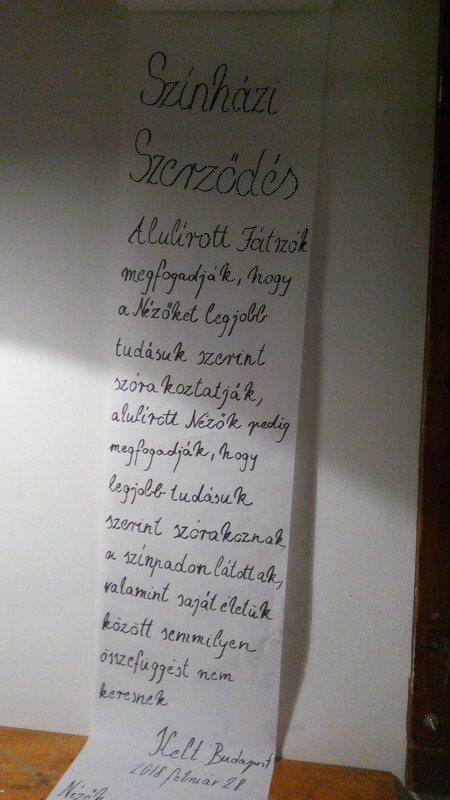 Színházi
Szerződés
Alulírott Játszók
megfogadják, hogy
a Nézőket legjobb
tudásuk szerint
szórakoztatják,
alulírott Nézők pedig
megfogadják, hogy
legjobb tudásuk
szerint szórakoznak,
a színpadon látottak,
valamint saját életük
között semmilyen
összefüggést nem
keresnek
Kelt. Budapest
2018 február 28
Nézők